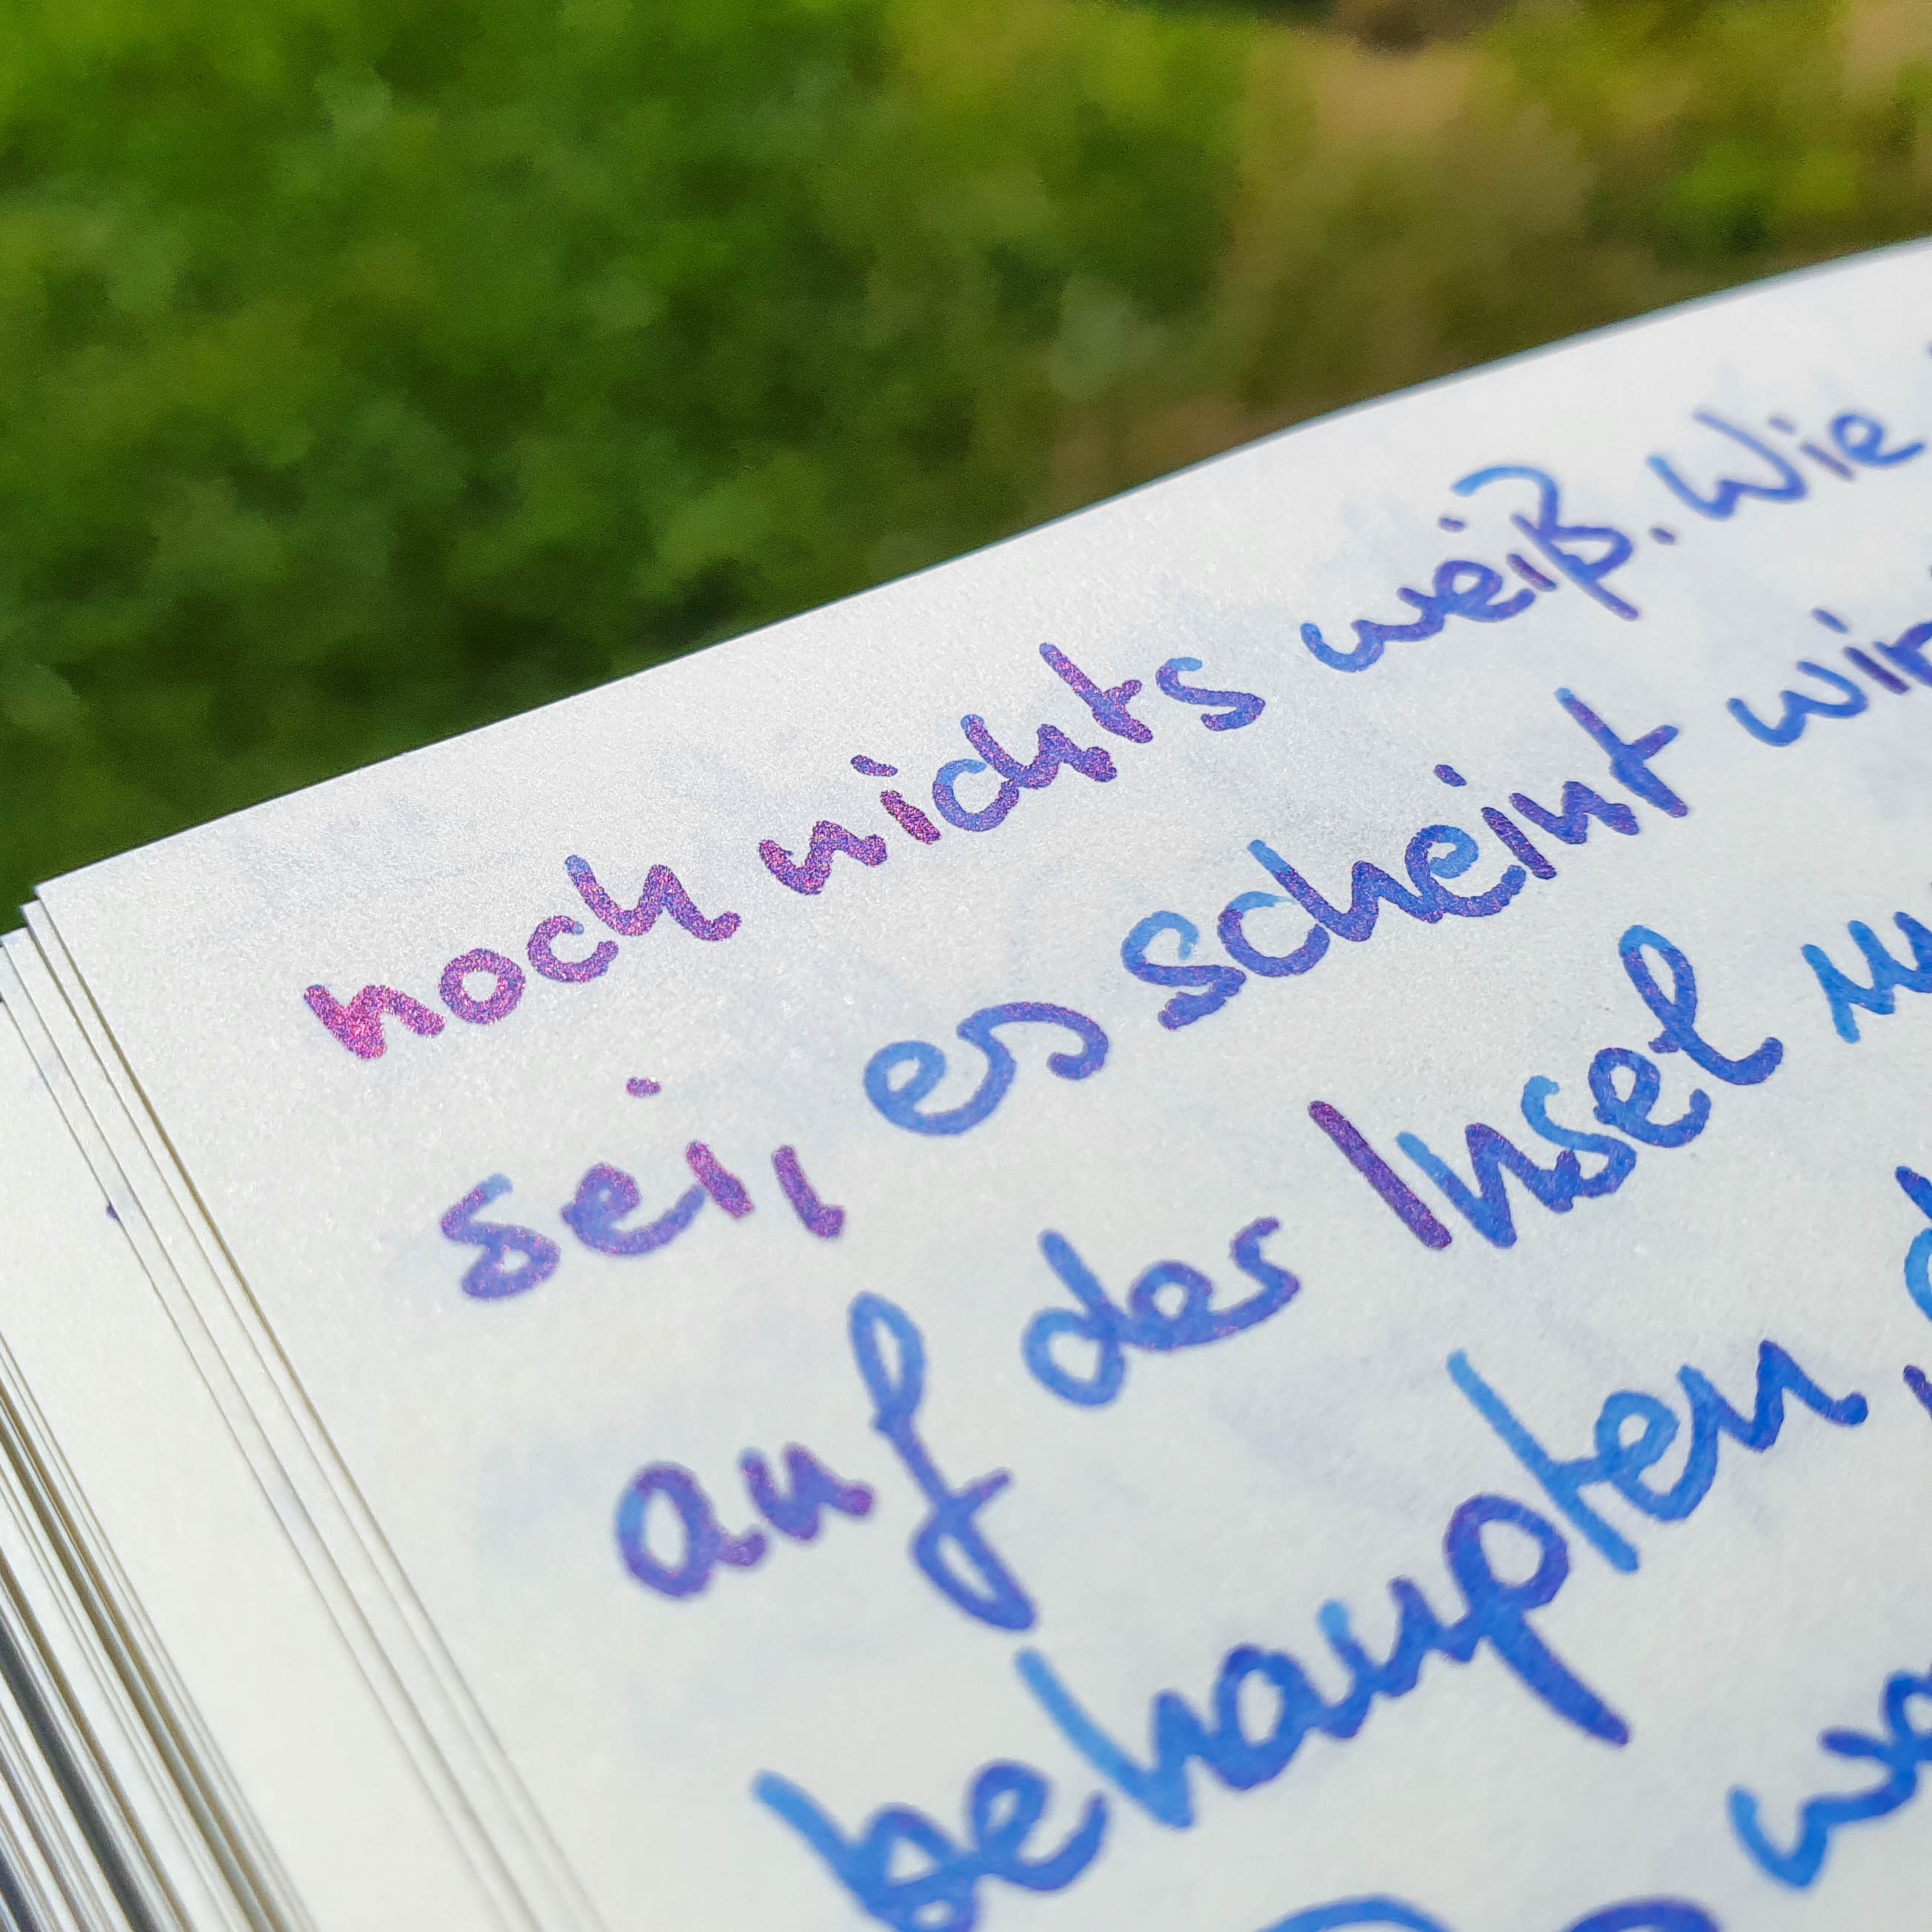 noch nichts weiß. Wie
sei, es scheint wir
auf der Insel
behaupten